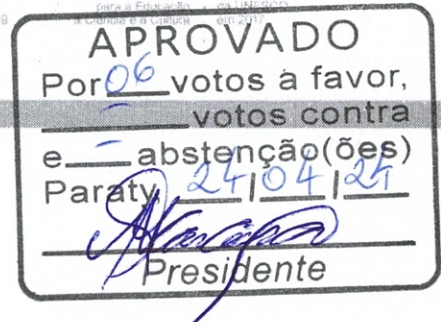 para a Educação
a Ciência e a Cultura
da UNESCO
em 2017
9
APROVADO
Por 06 votos a favor,
- votos contra
e - abstenção(ões)
Paraty, 24/04/24
Presidente